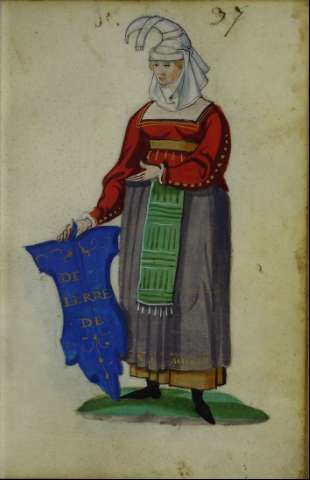 37
DE
LERRE
DE